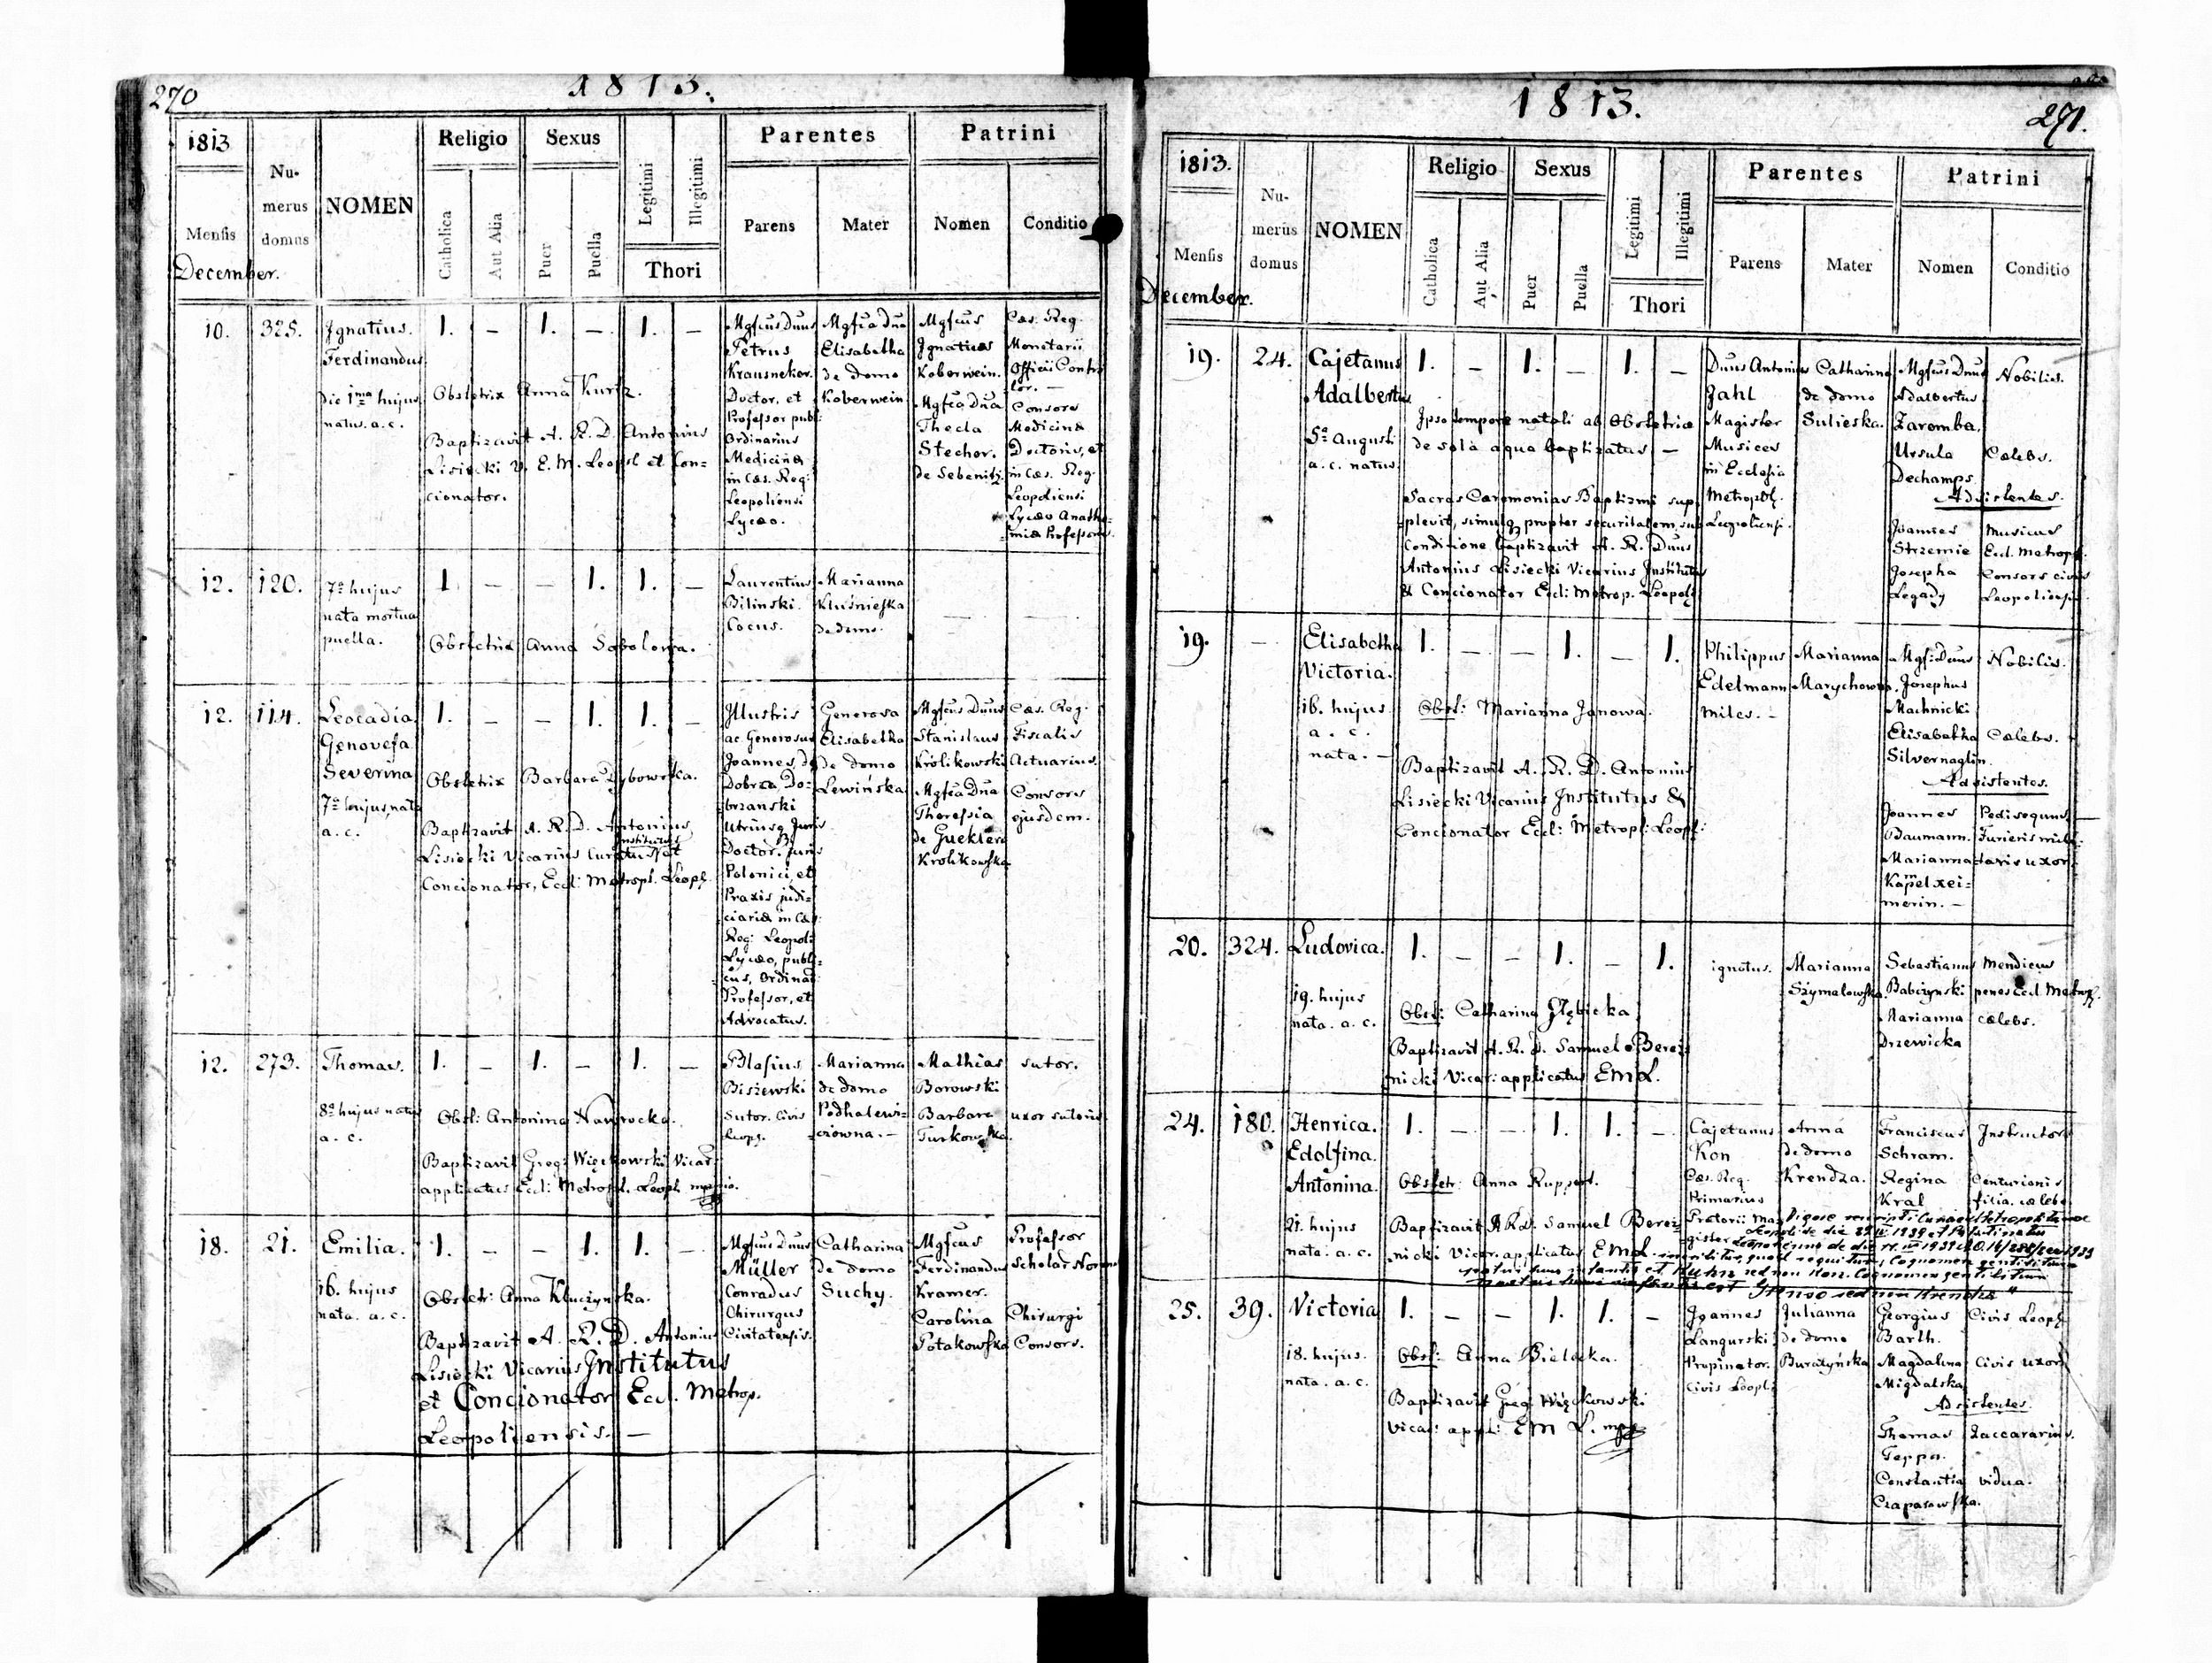 270
1813.
1813
Mensis
December.
Numerus
domus
NOMEN
Religio
Catholica
Aut Alia
Sexus
Puer
Puella
Legitimi
Illegitimi
Thori
Parentes
Parens
Mater
Patrini
Nomen
Conditio
10.
325.
Ignatius.
Ferdinandus.
Die 1ma hujus
natus. a. c.
1. — 1. — 1. —
Obstetrix Anna Kurtz.
Baptizavit A. R. D. Antonius
Lisiecki V. E. M. Leopol et Con=
cionator.
Mgfcus Dnus
Petrus
Krausneker.
Doctor, et
Professor publ:
Ordinarius
Medicinæ
in Cæs. Reg:
Leopoliensi
Lycæo.
Mgfca Dna
Elisabetha
de domo
Koberwein
Mgfcus
Ignatius
Koberwein.
Mgfca Dna
Thecla
Stechor.
de Sebenitz.
Cæs. Reg.
Monetarii
Officii Contro
lor. —
Consors
Medicinæ
Doctoris, et
in Cæs. Reg.
Leopoliensi
Lycæo Anatho=
miæ Professoris
12.
120.
7a hujus
nata mortua
puella.
1 — — 1. 1. —
Obstetrix Anna Sobolowa.
Laurentius
Bilinski.
Cocus.
Marianna
Kluśnieska
de domo
12.
114.
Leocadia
Genovefa
Severina
7a hujus, nata
a. c.
1. — — 1. 1. —
Obstetrix Barbara Dybowska.
Baptizavit A. R. D. Antonius
Institutus
Lisiecki Vicarius et
Concionator, Eccl: Metropl. Leopl.
Illustris
ac Generosus
Joannes, de
Dobrza, Do=
brzanski
Utriusq Juris
Doctor. Juris
Polonici, et
Praxis judi=
ciariæ in Cæs:
Reg: Leopoli
Lycæo, publi=
cus, Ordinar:
Professor, et
Advocatus.
Generosa
Elisabetha
de domo
Lewińska
Mgfcus Dnus
Stanislaus
Królikowski
Mgfca Dna
Theressia
de
Krolikowska
Cæs. Reg.
Fiscalis
Actuarius.
Consors
ejusdem.
12.
273.
Thomas.
8a hujus natus
a. c.
1. — 1. — 1. —
Obst: Antonina Nawrocka.
Baptizavit Greg: Więckowski Vicar:
applicatus Eccl: Metropl. Leopl.
Blasius
Biszewski
Sutor. Civis
Leopl.
Marianna
de domo
Podhalewi=
czowna. —
Mathias
Borowski
Barbara
Turkowska.
sutor.
uxor sutoris
18.
21.
Emilia.
16. hujus
nata. a. c.
1. — — 1. 1. —
Obstetr: Anna Kluczynska.
Baptizavit A. R. D. Antonius
Lisiecki Vicarius Institutus
et Concionator Eccl. Metrop.
Leopoliensis. —
Mgfcus Dnus
Müller
Conradus
Chirurgus
Civitatensis.
Catharina
de domo
Suchy.
Mgfcus
Ferdinandus
Kramer.
Carolina
Potakowska
Professor
Scholar Norm
Chirurgi
Consors.
271.
1813.
1813.
Mensis
December.
Numerus
domus
NOMEN
Religio
Catholica
Aut Alia
Sexus
Puer
Puella
Legitimi
Illegitimi
Thori
Parentes
Parens
Mater
Patrini
Nomen
Conditio
19.
24.
Cajetanus
Adalbertus
5a Augusti
a. c. natus.
1. — 1. — 1. —
Ipso tempore natali ab Obstetrice
de sola aqua baptizatus —
Sacras Cæremonias Baptizmi sup
plevit, simulq propter securitatem, sub
Conditione baptizavit A. R. Dnus
Antonius Lisiecki Vicarius Institutus
& Concionator Eccl: Metrop. Leopol
Dnus Antonius
Zahl
Magister
Musices
in Ecclesia
Metropol.
Leopoliensi.
Catharina
de domo
Sulieska.
Mgfcus Dnus
Adalbertus
Zaremba.
Ursula
Dechamps.
Adsistentes.
Joannes
Strzemie
Josepha
Legady
Nobilis.
Cælebs.
Musicus
Eccl. Metropl.
Consors civis
Leopoliensis
19.
—
Elisabetha
Victoria.
16. hujus
a. c.
nata. —
1. — — 1. — 1.
Obst: Marianna Janowa.
Baptizavit A. R. D. Antonius
Lisiecki Vicarius Institutus &
Concionator Eccl: Metropl: Leopl:
Philippus
Edelmann
miles. —
Marianna
Marychowna.
Mgf: Dnus
Josephus
Machnicki
Elisabetha
Silvernaglin.
Adsistentes.
Joannes
Baumann.
Marianna
Kampelxei=
merin. —
Nobilis.
Cælebs.
Pedisequus
Furieris mili=
taris uxor.
20.
324.
Ludovica.
19. hujus
nata. a. c.
1. — — 1. — 1.
Obst: Catharina Głębicka
Baptizavit A. R. D. Samuel Berez=
nicki Vicar: applicatus EML.
ignotus.
Marianna
Szymalowska.
Sebastianus
Babczynski
Marianna
Drzewicka
Mendicus
penes Eccl. Metropl.
cælebs.
24.
180.
Henrica.
Edolfina.
Antonina.
21. hujus
nata. a. c.
1. — — 1. 1. —
Obstetr: Anna Ruppert.
Baptizavit A R D. Samuel Berez=
nicki Vicar. applicatus EML.
Cajetanus
Kon
Cæs. Reg.
Primarius
Pretorii Ma
gister
Anna
de domo
Krendza.
Franciscus
Schram.
Regina
Kral
Instructor
Centurionis
filia. cælebs
Vigore rescripti Curiae Metropolitanae
Leopoli de die 1939 et Palatinatus
Leopoliensis de die 1939
quod requiritur, Cognomen gentilitium
patris et Kuhn sed non Kon. Cognomen gentilitium
est sed non Krendza"
25.
39.
Victoria
18. hujus.
nata. a. c.
1. — — 1. 1. —
Obst: Anna Bielacka.
Baptizavit Greg: Więckowski
Vicar: appl: EM L.
Joannes
Langurski
Propinator.
Civis Leopl:
Julianna
de domo
Burażyńska
Georgius
Barth.
Magdalena
Migdalska
Adsistentes.
Thomas
Teppa.
Constantia
Czaparowska.
Civis Leopl
Civis uxor
Zaccararius.
vidua.